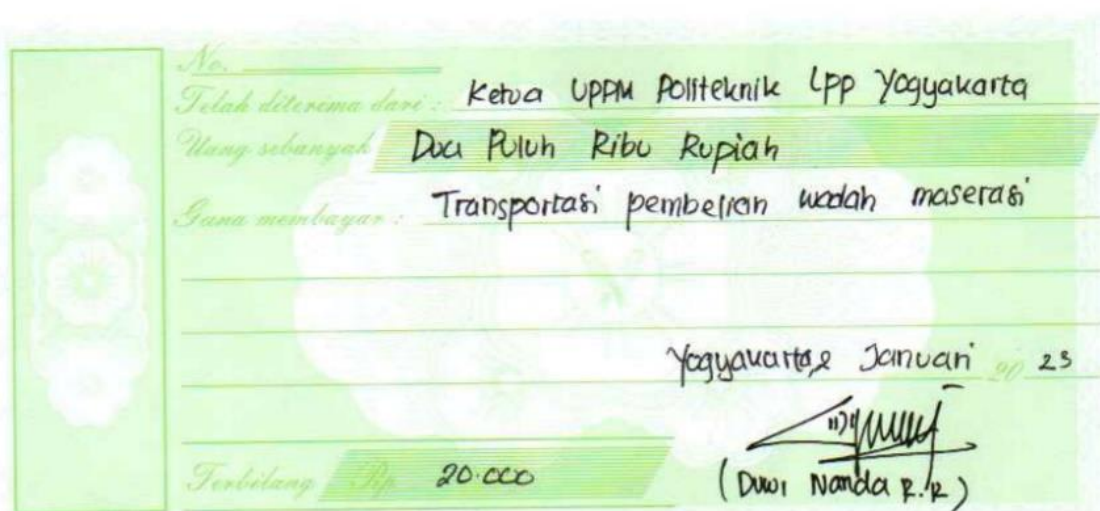 No.
Telah diterima dari : Ketua UPPM Politeknik LPP Yogyakarta
Uang sebanyak Dua Puluh Ribu Rupiah
Guna membayar : Transportasi pembelian wadah maserasi
Yogyakarta, 2 Januari 20 23
Terbilang Rp. 20.000
(Duwi Nanda R.R)